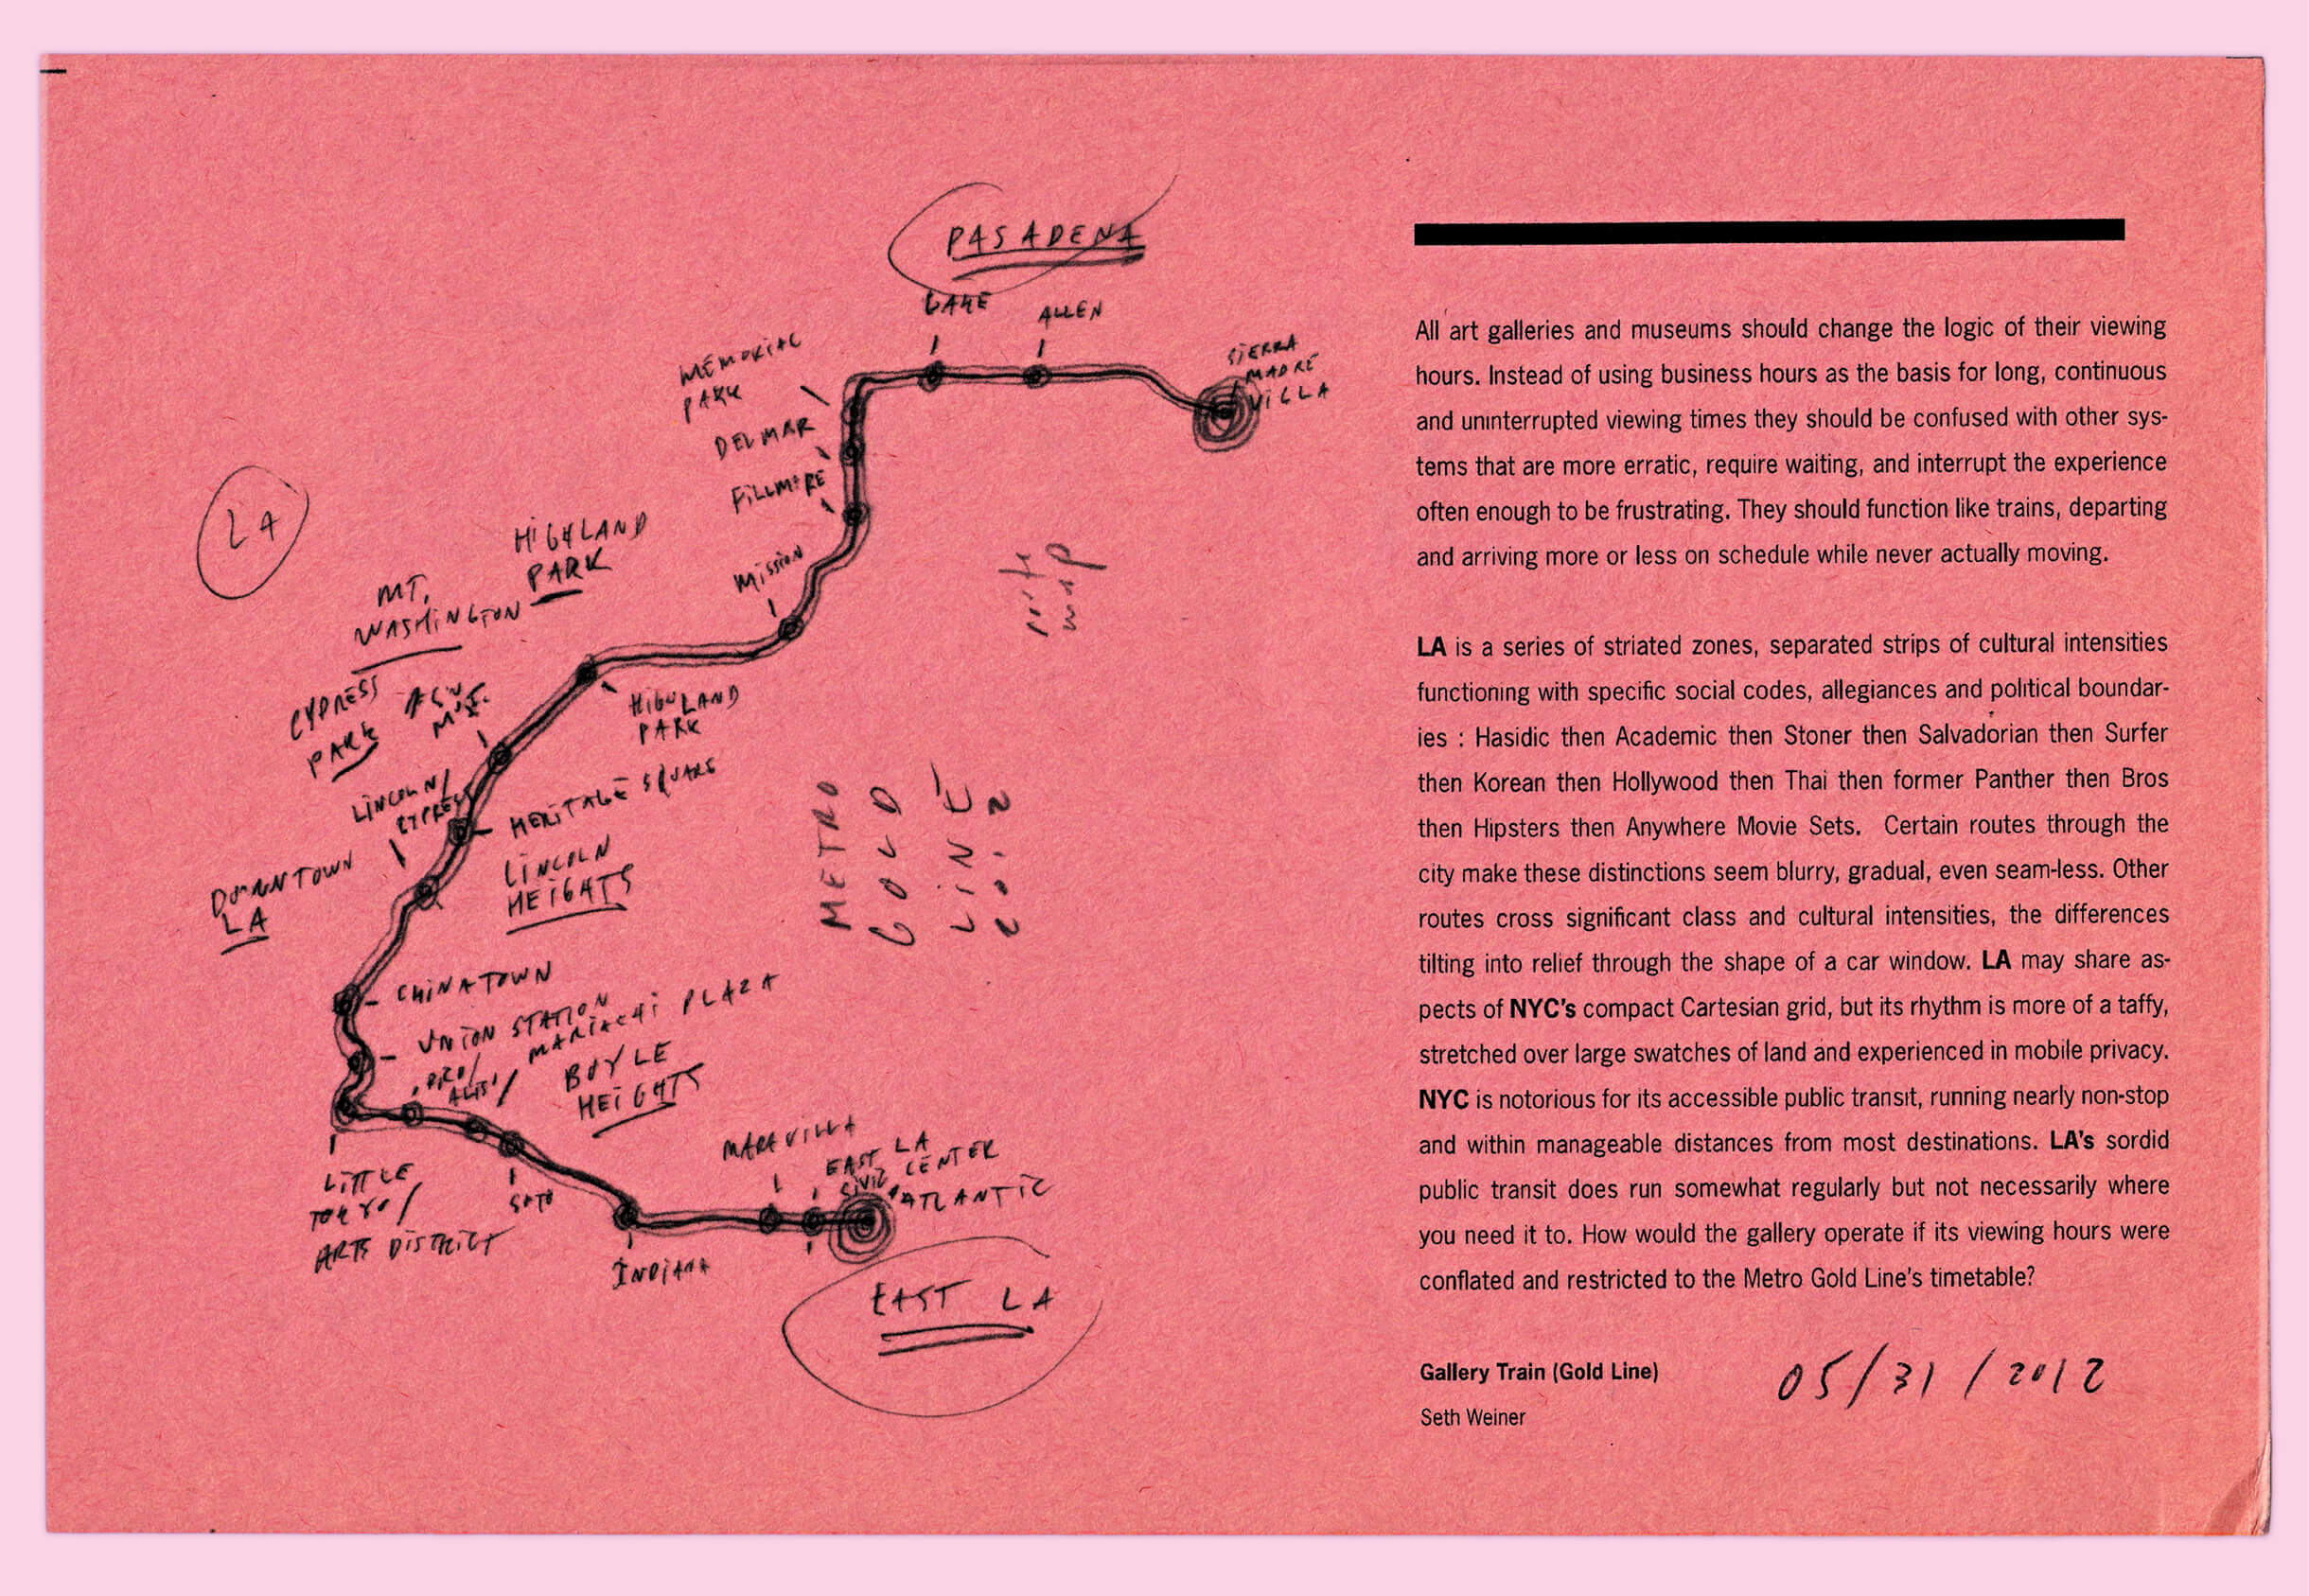 PASADENA
LAKE
ALLEN
SIERRA
MADRE
VILLA
MEMORIAL
PARK
DEL MAR
FILLMORE
MISSION
LA
HIGHLAND
PARK
MT.
WASHINGTON
CYPRESS
PARK
HIGHLAND
PARK
LINCOLN/
CYPRESS
HERITAGE SQUARE
LINCOLN
HEIGHTS
DOWNTOWN
LA
METRO
GOLD
LINE
2012
map
CHINATOWN
UNION STATION
MARIACHI PLAZA
BOYLE
HEIGHTS
LITTLE
TOKYO/
ARTS DISTRICT
SOTO
INDIANA
MARAVILLA
EAST LA
CIVIC CENTER
ATLANTIC
EAST LA
All art galleries and museums should change the logic of their viewing
hours. Instead of using business hours as the basis for long, continuous
and uninterrupted viewing times they should be confused with other sys-
tems that are more erratic, require waiting, and interrupt the experience
often enough to be frustrating. They should function like trains, departing
and arriving more or less on schedule while never actually moving.
LA is a series of striated zones, separated strips of cultural intensities
functioning with specific social codes, allegiances and political boundar-
ies : Hasidic then Academic then Stoner then Salvadorian then Surfer
then Korean then Hollywood then Thai then former Panther then Bros
then Hipsters then Anywhere Movie Sets. Certain routes through the
city make these distinctions seem blurry, gradual, even seam-less. Other
routes cross significant class and cultural intensities, the differences
tilting into relief through the shape of a car window. LA may share as-
pects of NYC's compact Cartesian grid, but its rhythm is more of a taffy,
stretched over large swatches of land and experienced in mobile privacy.
NYC is notorious for its accessible public transit, running nearly non-stop
and within manageable distances from most destinations. LA's sordid
public transit does run somewhat regularly but not necessarily where
you need it to. How would the gallery operate if its viewing hours were
conflated and restricted to the Metro Gold Line's timetable?
Gallery Train (Gold Line)
Seth Weiner
05/31/2012